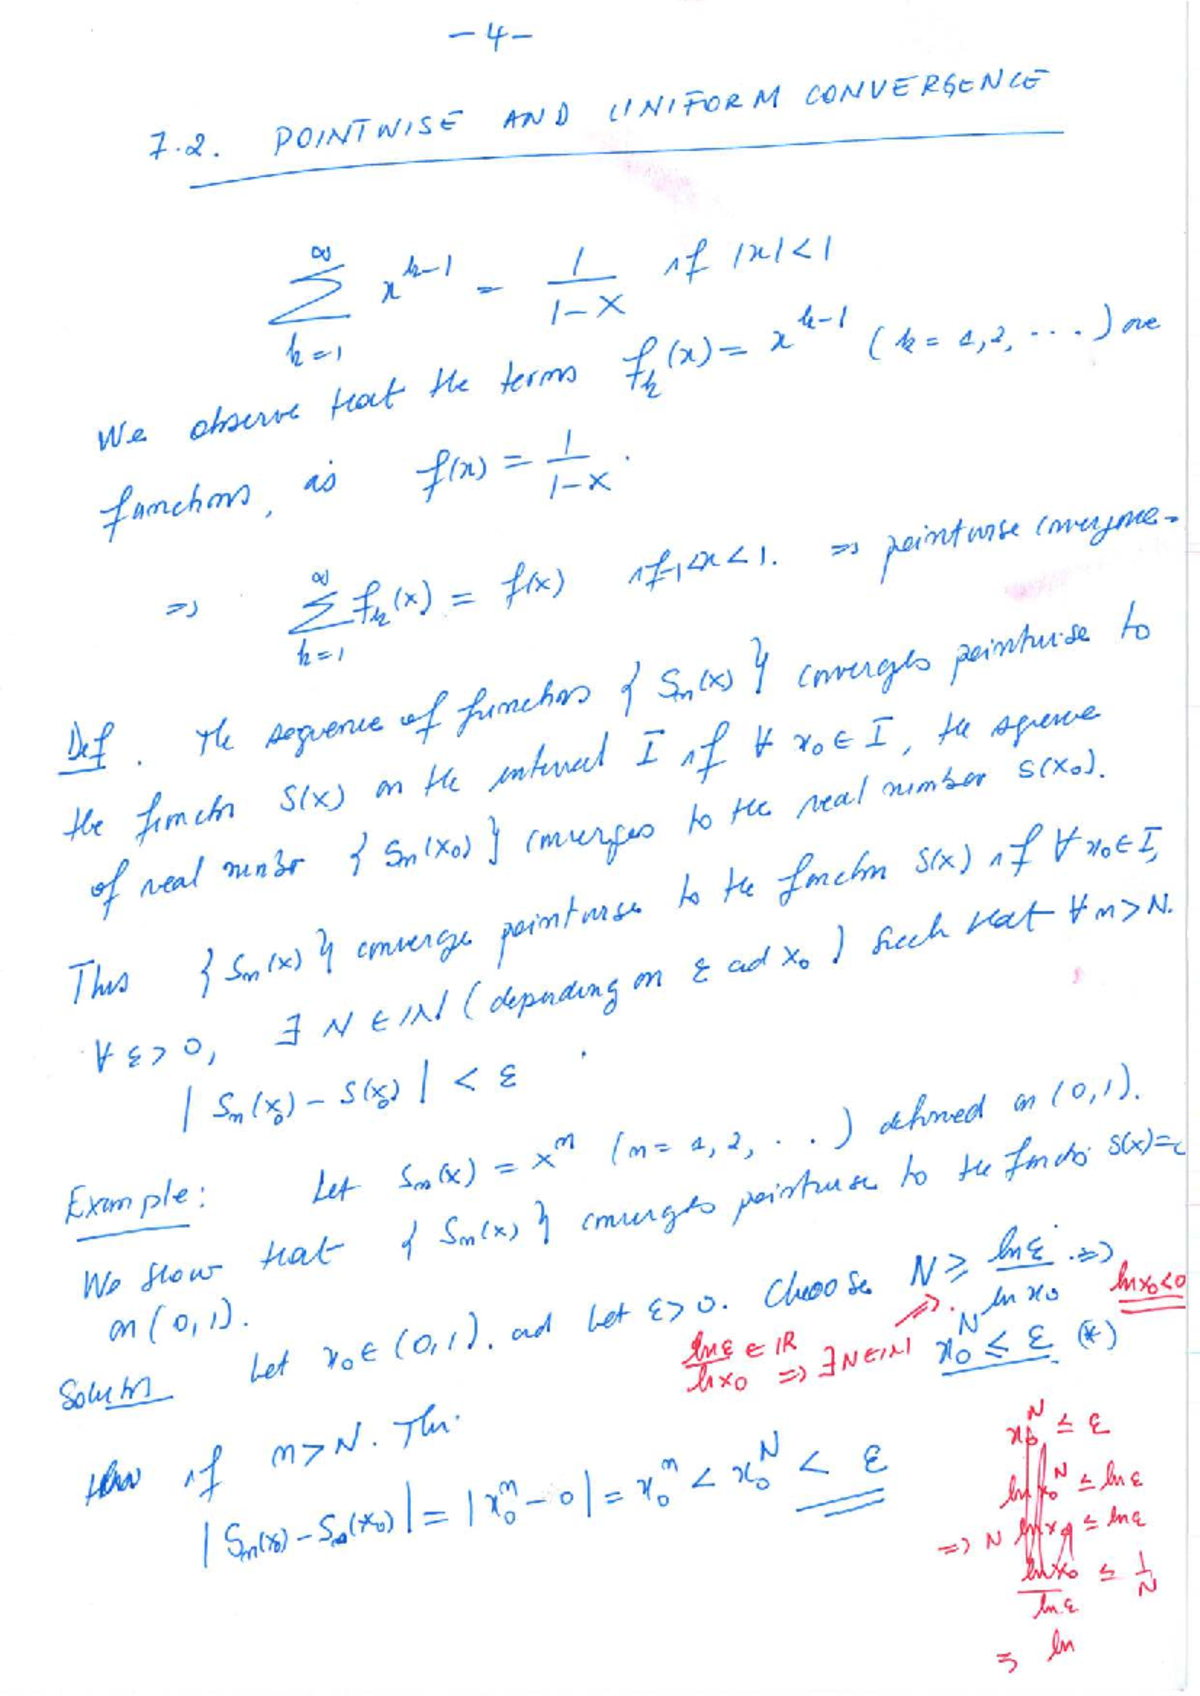 -4-
7.2. POINTWISE AND UNIFORM CONVERGENCE
∑_{k=1}^{∞} x^{k-1} = 1/(1-x) if |x|<1
We observe that the terms f_k(x) = x^{k-1} (k = 1,2, ...) are
functions, as f(x) = 1/(1-x).
=> ∑_{k=1}^{∞} f_k(x) = f(x) if -1<x<1. => pointwise convergence.
Def. The sequence of functions { S_n(x) } converges pointwise to
the function S(x) on the interval I if ∀ x_0 ∈ I, the sequence
of real number { S_n(x_0) } converges to the real number S(x_0).
Thus { S_n(x) } converge pointwise to the function S(x) if ∀ x_0 ∈ I,
∀ ε > 0, ∃ N ∈ IN (depending on ε ad x_0) such that ∀ n > N.
| S_n(x_0) - S(x_0) | < ε
Example: Let S_n(x) = x^n (n = 1, 2, ...) defined on (0,1).
We show that { S_n(x) } converges pointwise to the function S(x)=
on (0,1).
Solution Let x_0 ∈ (0,1). ad let ε > 0. Choose N ≥ ln ε / ln x_0 =>
ln x_0 < 0
ln ε / ln x_0 ∈ IR => ∃ N ∈ IN =>.
x_0^N ≤ ε (*)
if n > N. Then
| S_n(x_0) - S(x_0) | = | x_0^n - 0 | = x_0^n < x_0^N < ε
x_0^N ≤ ε
ln x_0^N ≤ ln ε
=> N ln x_0 ≤ ln ε
ln x_0 / ln ε ≤ 1/N
ln